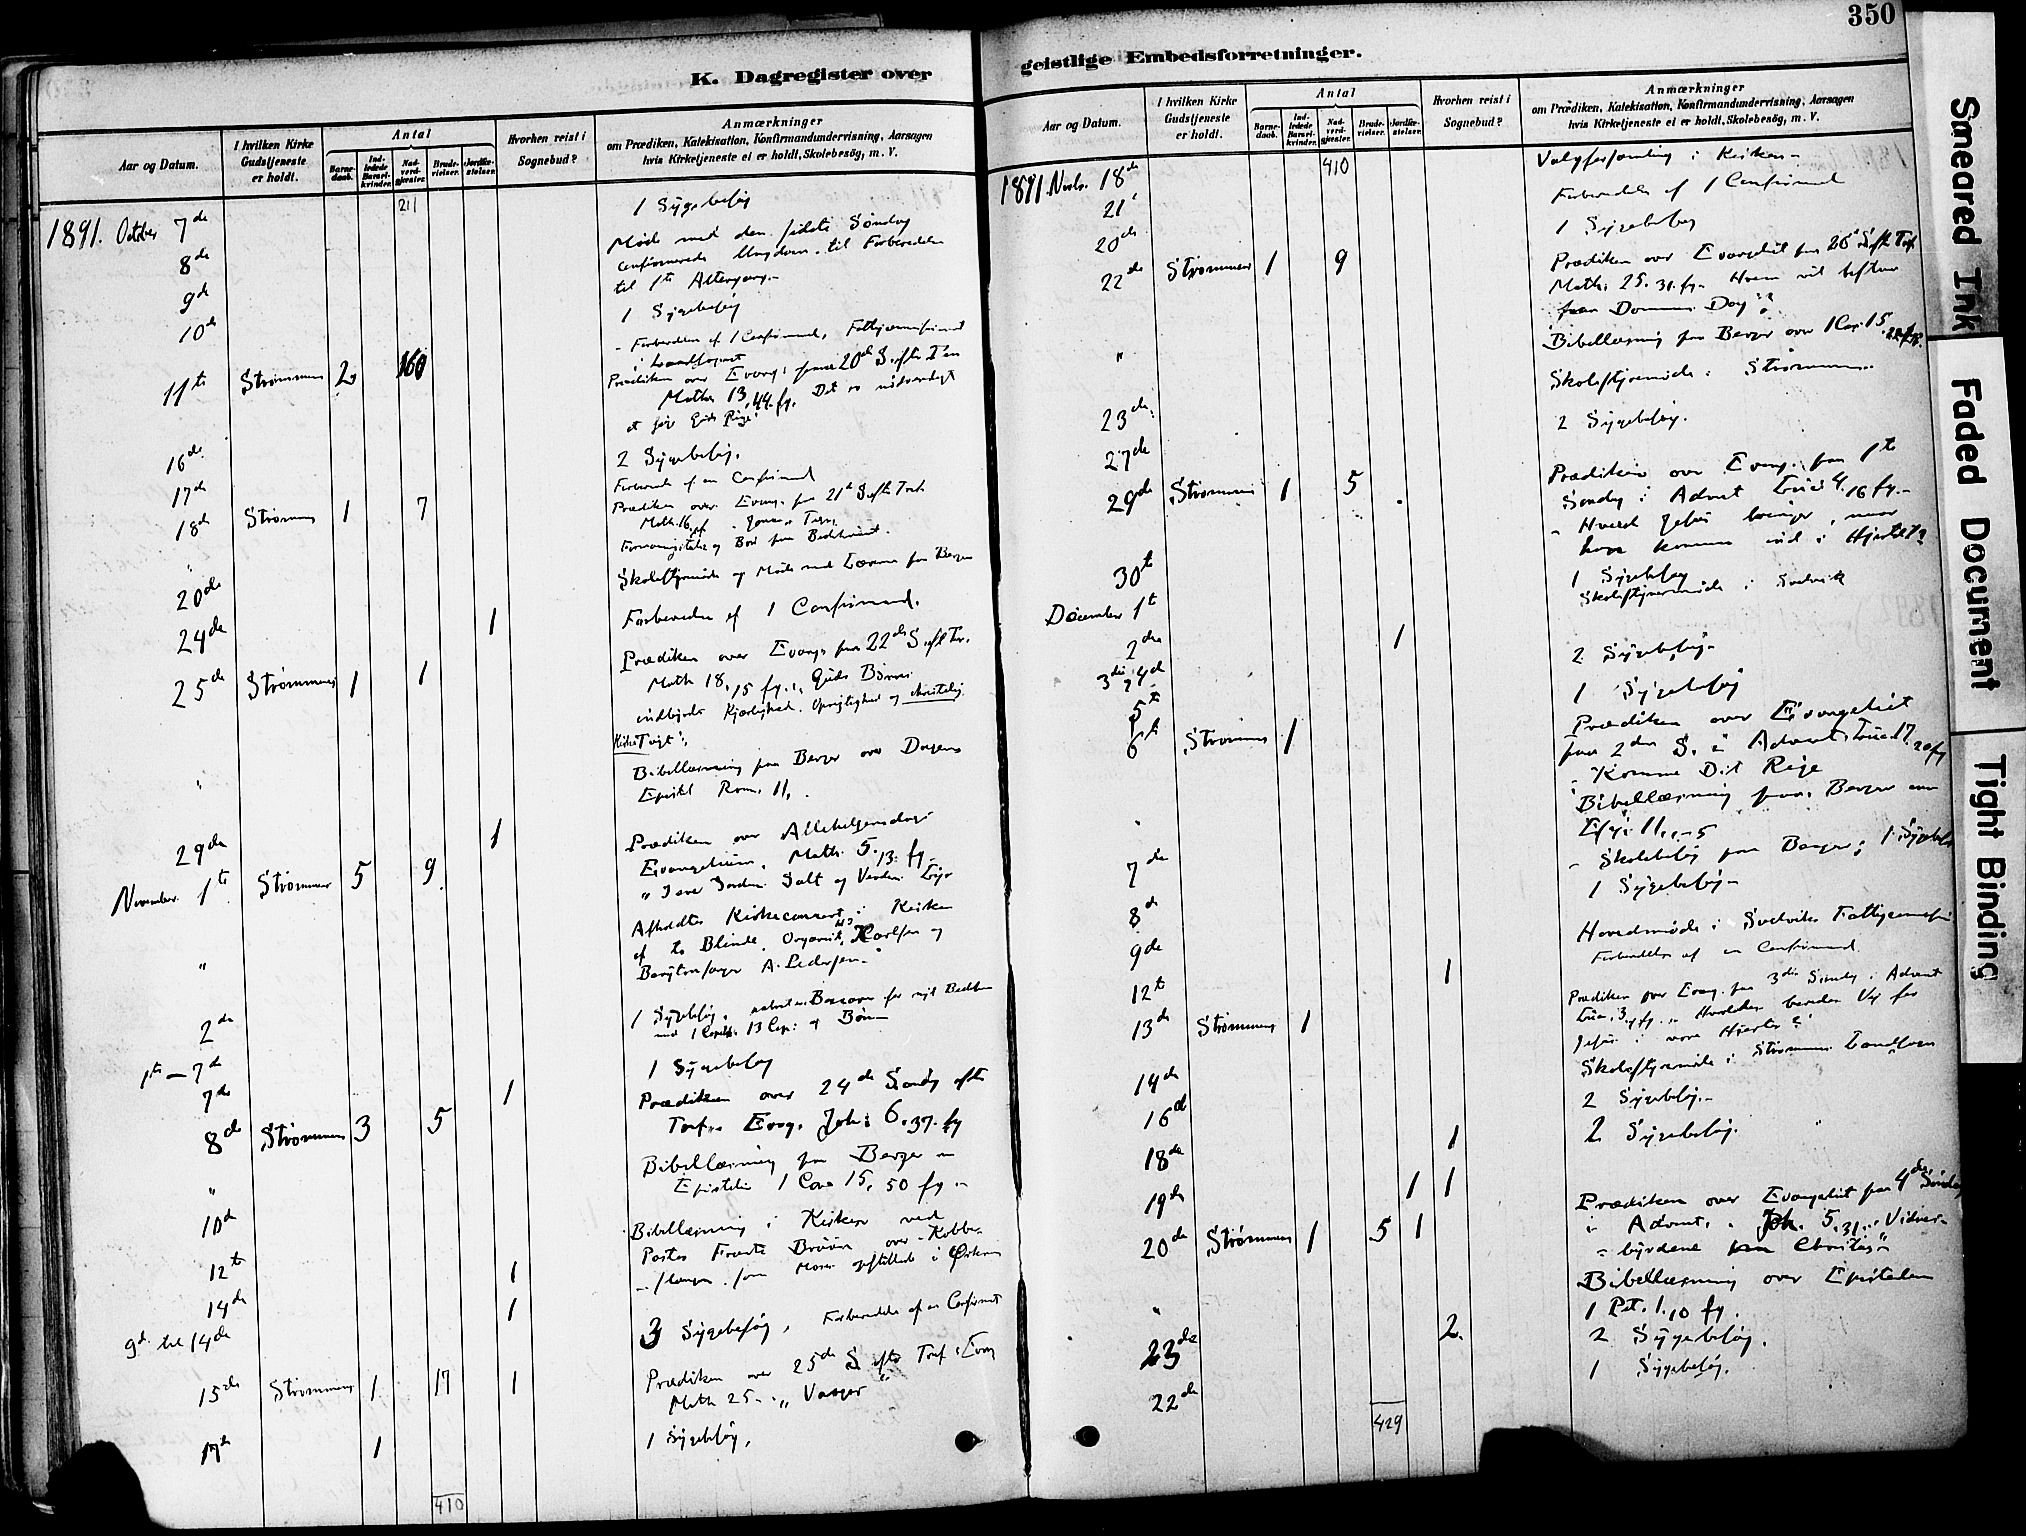 350
K. Dagregister over
geistlige Embedsforretninger.
Aar og Datum.
I hvilken Kirke Gudstjeneste er holdt.
Antal
Barnedaab.
Indledede Barselkvinder.
Nadverdgjæster.
Brudevielser.
Jordfæstelser.
Hvorhen reist i Sognebud?
Anmærkninger
om Prædiken, Katekisation, Konfirmandundervisning, Aarsagen
hvis Kirketjeneste ei er holdt, Skolebesög, m. V.
211
1891. October 7de
1 Sygebesøg
8de
Møde med den sidste Søndag
confirmerede Ungdom til Forberedelse
til 1ste Altergang
9de
1 Sygebesøg
10de
Forberedelse af 1 Confirmand,
11te Strømmen 2 160
Prædiken over Evang. paa 20de S. efter Trin
Math 13,44 fg. Det er nødvendigt
at søge Guds Rige
16de
2 Sygebesøg.
17de
Forberedelse af en Confirmand
18de Strømmen 1 7
Prædiken over Evang. paa 21de S. eft. Tref.
Math. 16,
20de
Skolestyremøde og Møde med Lærerne paa Berger
24de 1
Forberedelse af 1 Confirmand.
25de Strømmen 1 1
Prædiken over Evang. paa 22de S. eft. Tr.
Math 18, 15 fg. Guds Børns
indbyrdes Kjærlighed, Oprigtighed og christelig
Kirke Tugt
"
Bibellæsning paa Berger over Dagens
Epistel Rom. 11,
29de 1
November 1te Strømmen 5 9
Prædiken over Allehelgensdags
Evangelium. Math. 5. 13. fg.
"I ere Jordens Salt og Verdens Lys
"
Afholdtes Kirkeconcert i Kirken
af to Blinde. Organist Karlsen og
A. Pedersen.
2de
1 Sygebesøg,
1te — 7de
1 Sygebesøg
7de 1
8de Strømmen 3 5
Prædiken over 24de Søndag efter
Tref. Evang. Joh: 6. 37. fg
"
Bibellæsning paa Berger
Epistelen 1 Cor 15, 50 fg.
10de
Bibellæsning i Kirken ved
Pastor Brun over Kobber-
slangen som Moses opstillede i Ørkenen
12te 1
14de 1
9de til 14de
3 Sygebesøg, Forberedelse af en Confirmand
15de Strømmen 1 17 1
Prædiken over 25de S. efter Tref. Evang
Math 25. "Vaager"
17de 1
1 Sygebesøg.
410
Aar og Datum.
I hvilken Kirke Gudstjeneste er holdt.
Antal
Barnedaab.
Indledede Barselkvinder.
Nadverdgjæster.
Brudevielser.
Jordfæstelser.
Hvorhen reist i Sognebud?
Anmærkninger
om Prædiken, Katekisation, Konfirmandundervisning, Aarsagen
hvis Kirketjeneste ei er holdt, Skolebesög, m. V.
410
1891 Novbr. 18de
Valgforsamling i Kirken
21
Forberedelse af 1 Confirmand
20de
1 Sygebesøg
22de Strømmen 1 9
Prædiken over Evangeliet paa 26de S. eft. Tref.
Math. 25. 31. fg. Hvem vil bestaa
paa Dommens Dag?
"
Bibellæsning paa Berger over 1 Cor. 15.
23de
Skolestyremøde i Strømmen.
27de
2 Sygebesøg.
29de Strømmen 1 5
Prædiken over Evang. paa 1te
Søndag i Advent Luc. 4. 16 fg.
Hvad Jesus bringer, naar
han kommer ind i Hjertet?
30te
1 Sygebesøg
December 1te
Skolestyremøde i Svelvik
2den 1
2 Sygebesøg
3die, 4de
5te
1 Sygebesøg
6te Strømmen 1
Prædiken over Evangeliet
paa 2den S. i Advent Luc. 17. 20 fg
"Komme Dit Rige
Bibellæsning paa Berger
Es. 11. 1-5
7de
Skolebesøg paa Berger; 1 Sygebesøg
8de
1 Sygebesøg
9de
Hovedmøde i Svelviks
12te 1
Forberedelse af en Confirmand.
13de Strømmen 1
Prædiken over Evang. paa 3die Søndag i Advent
Luc. 3, fg. "Hvorledes beredes Vej for
Jesus i vore Hjerter?"
14de
Skolestyremøde i Strømmen Landsogn
16de
2 Sygebesøg.
18de 1
2 Sygebesøg.
19de 1 1
20de Strømmen 1 5 1
Prædiken over Evangeliet paa 4de Søndag
i Advent. Joh. 5. 31. "Vidnes-
byrdene om Christus"
"
Bibellæsning over Epistelen
1 Pet. 1. 10 fg.
23de 2.
2 Sygebesøg.
22de
1 Sygebesøg.
429
Smeared Ink
Faded Document
Tight Binding